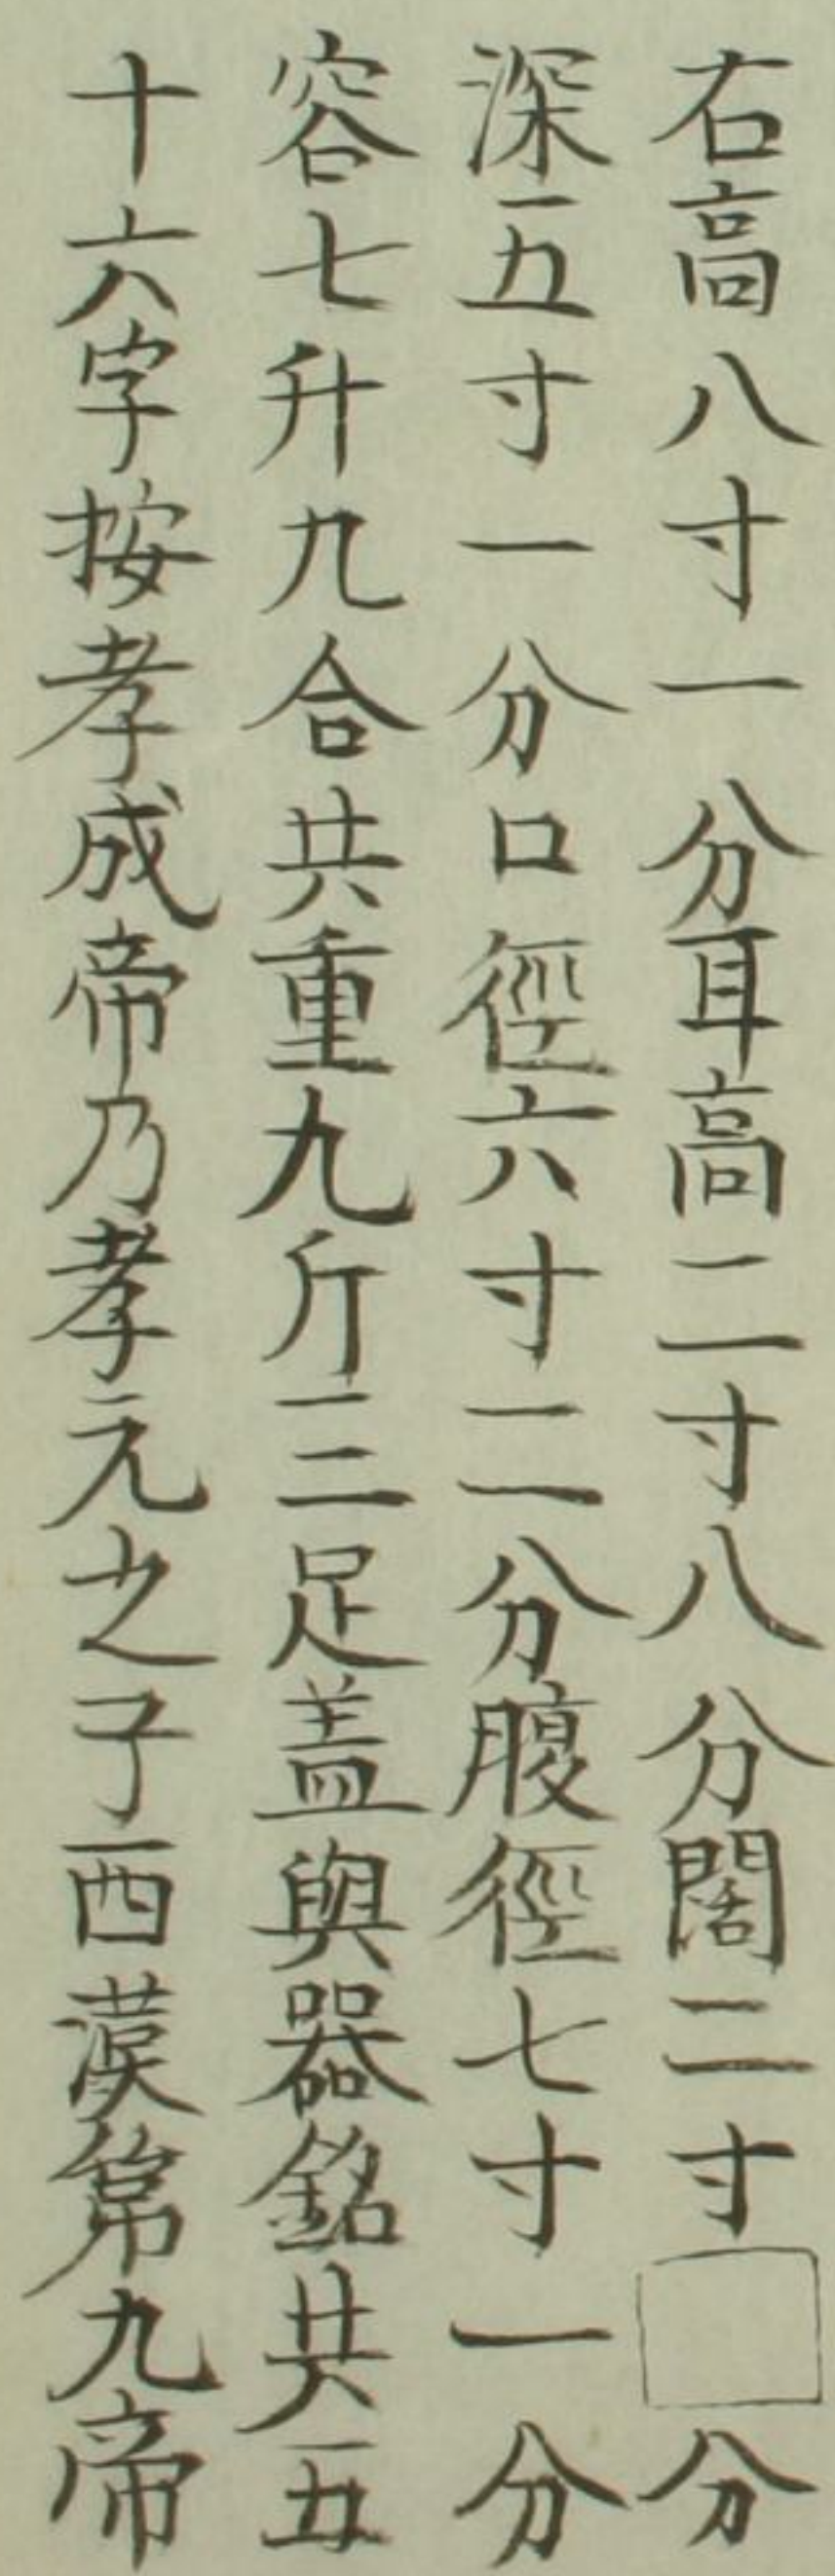 右高八寸一分耳高二寸八分闊二寸□分
深五寸一分口徑六寸二分腹徑七寸一分
容七升九合共重九斤三足盖與器銘共五
十六字按孝成帝乃孝元之子西漢第九帝